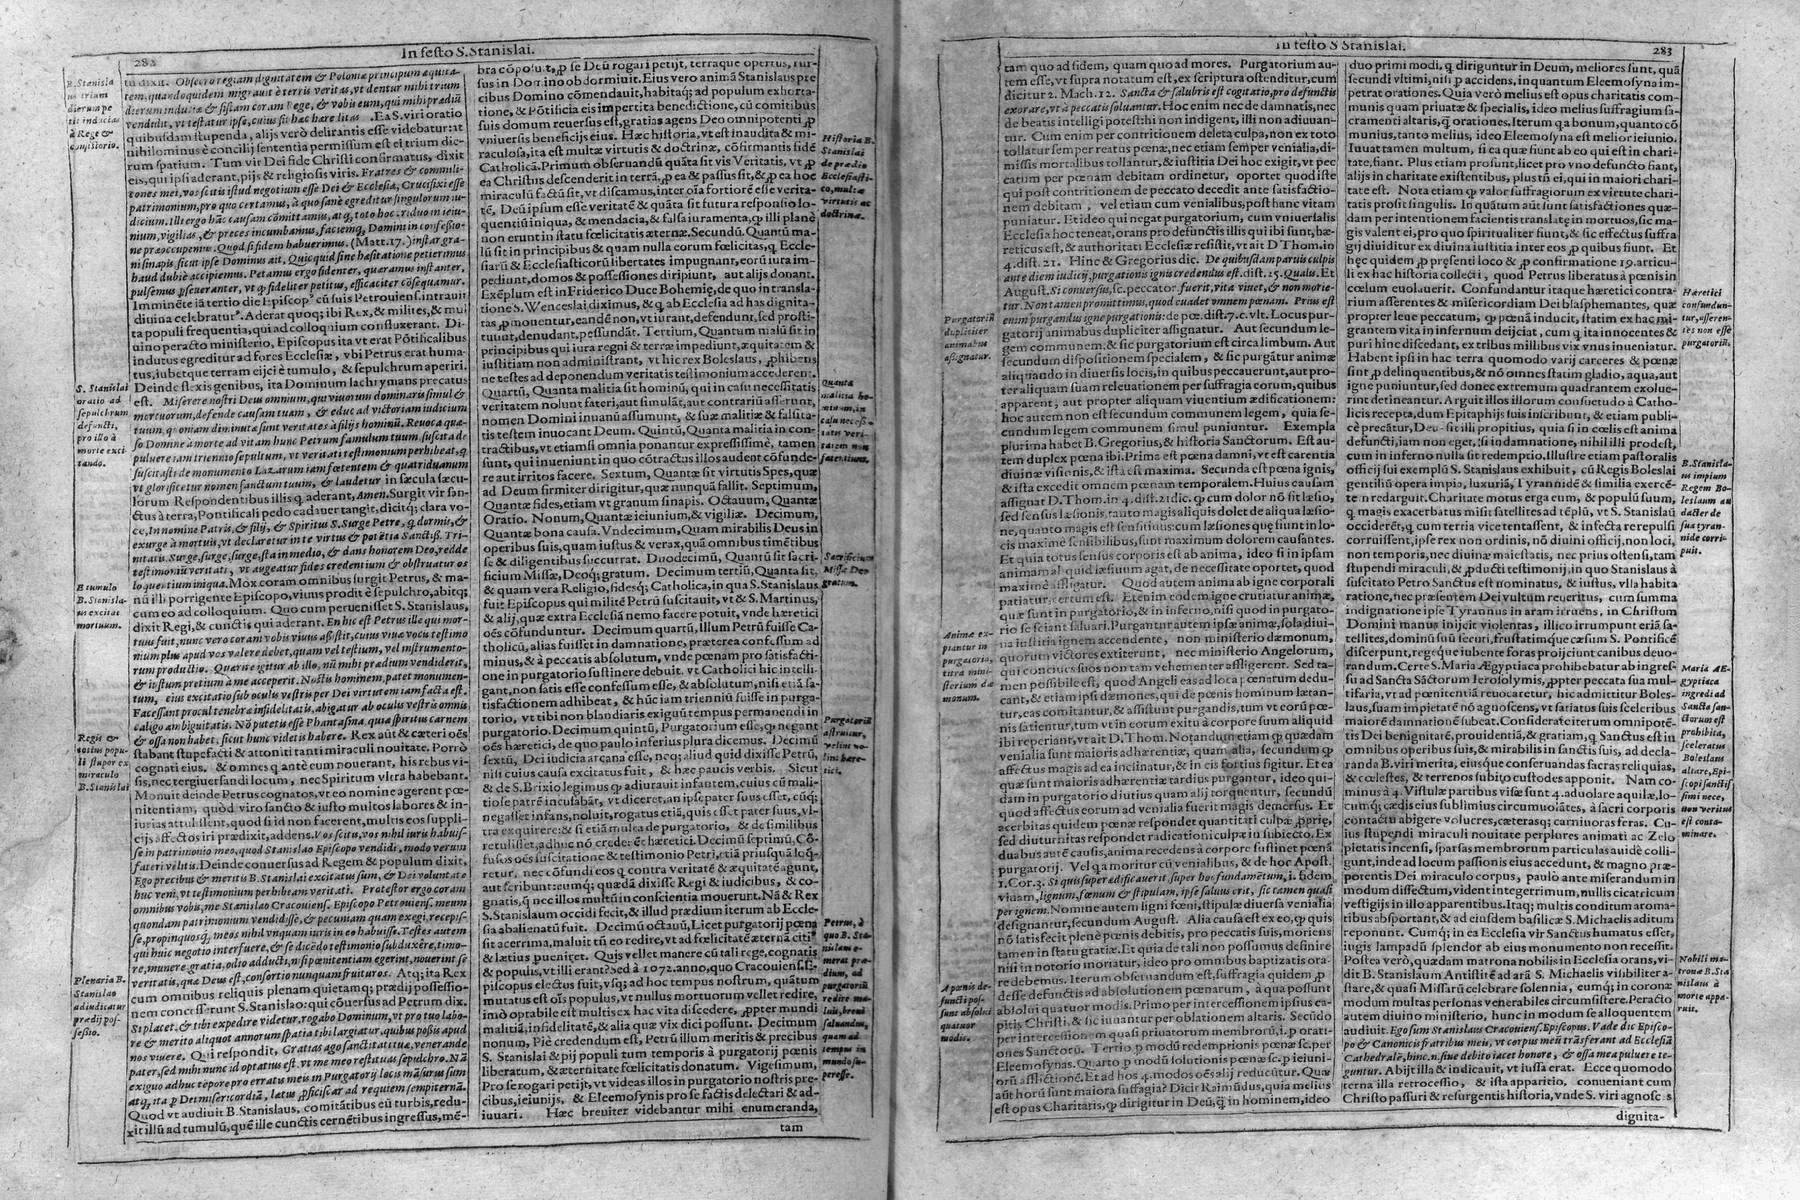 282
In festo S. Stanislai.
B. Stanisla
us trium
dierum pe
tit inducias
à Rege &
consistorio.
S. Stanislai
oratio ad
sepulchrum
defuncti,
pro illo à
morte exci
tando.
E tumulo
B. Stanisla-
us excitat
mortuum.
Regis &
totius popu-
li stupor ex
miraculo
B. Stanislai
Plenaria B.
Stanislao
adiudicatur
prædij pos-
sessio.
tu dixit. Obsecro regiam dignitatem & Poloniæ principum æquita-
tem, quandoquidem migrauit è terris veritas, vt dentur mihi trium
dierum induciæ & sistam coram Rege, & vobis eum, qui mihi prædiũ
vendidit, vt testatur ipse, cuius sit hæc hære litas. Ea S. viri oratio
quibusdam stupenda, alijs verò delirantis esse videbatur: at
nihilominus è concilij sententia permissum est ei trium dic-
rum spatium. Tum vir Dei fide Christi confirmatus, dixit
eis, qui ipsi aderant, pijs & religiosis viris. Fratres & commili-
tones mei, vos scitis istud negotium esse Dei & Ecclesiæ, Crucifixi esse
patrimonium, pro quo certamus, à quo sanè egreditur singulorum iu-
dicium. Illi ergo hãc causam cõmittamus, atq́, toto hoc triduo in ieiu-
nium, vigilias, & preces incumbamus, faciemq́, Domini in confessio-
ne præoccupemus. Quod si fidem habuerimus. (Matt. 17.) instar gra-
ni sinapis, sicut ipse Dominus ait, Quicquid sine hæsitatione petierimus
haud dubiè accipiemus. Petamus ergo fidenter, quæramus instanter,
pulsemus ꝑseueranter, vt ꝙ fideliter petitur, efficaciter cõsequamur.
Imminẽte iã tertio die Episcopꝰ cũ suis Petrouiensẽ intrauit
diuina celebraturꝰ. Aderat quoq; ibi Rex, & milites, & mul
ta populi frequentia, qui ad colloquium confluxerant. Di-
uino peracto ministerio, Episcopus ita vt erat Põtificalibus
indutus egreditur ad fores Ecclesiæ, vbi Petrus erat huma-
tus, iubetque terram eijci è tumulo, & sepulchrum aperiri.
Deinde flexis genibus, ita Dominum lachrymans precatus
est. Miserere nostri Deus omnium, qui viuorum dominaris simul &
mortuorum, defende causam tuam, & educ ad victoriam iudicium
tuum, quoniam diminutæ sunt veritates à filijs hominũ. Reuoca quæ-
so Domine à morte ad vitam hunc Petrum famulum tuum, suscita de
puluere iam triennio sepultum, vt veritati testimonium perhibeat, q
suscitasti de monumento Lazarum iam fœtentem & quatriduanum
vt glorificetur nomen sanctum tuum, & laudetur in sæcula sæcu-
lorum Respondentibus illis q aderant, Amen. Surgit vir san-
ctus à terra, Pontificali pedo cadauer tangit, dicitq; clara vo-
ce, In nomine Patris, & filij, & Spiritus S. Surge Petre, q dormis, &
exurge à mortuis, vt declaretur in te virtus & potẽtia Sanctiß. Tri-
nitatis. Surge, surge, surge, sta in medio, & dans honorem Deo, redde
testimoniũ veritati, vt augeatur fides credentium & obstruatur os
loquentium iniqua. Mox coram omnibus surgit Petrus, & ma-
nũ illi porrigente Episcopo, viuus prodit è sepulchro, abitq;
cum eo ad colloquium. Quo cum peruenisset S. Stanislaus,
dixit Regi, & cunctis qui aderant. En hic est Petrus ille qui mor-
tuus fuit, nunc vero coram vobis viuus aßistit, cuius viuæ vocu testimo
nium plus apud vos valere debet, quam vel testium, vel instrumento-
rum productio. Quærite igitur ab illo, nũ mihi prædium vendiderit,
& iustum pretium à me acceperit. Nostis hominem, patet monumen-
tum, eius excitatio sub oculis vestris per Dei virtutem iam facta est.
Facessant procul tenebræ infidelitatis, abigatur ab oculis vestris omnis
caligo ambiguitatis. Nõ putetis esse Phantasma, quia spiritus carnem
& ossa non habet, sicut hunc videtis habere. Rex aũt & cæteri oẽs
stabant stupefacti & attoniti tanti miraculi nouitate. Porrò
cognati eius, & omnes q antè eum nouerant, his rebus vi-
sis, nec tergiuersandi locum, nec Spiritum vltra habebant.
Monuit deinde Petrus cognatos, vt eo nomine agerent pœ-
nitentiam, quòd viro sancto & iusto multos labores & in-
iurias attulissent, quod si id non facerent, multis eos suppli-
cijs affectos iri prædixit, addens. Vos scitis, vos nihil iuris habuis-
se in patrimonio meo, quod Stanislao Episcopo vendidi, modo verum
fateri vultis. Deinde conuersus ad Regem & populum dixit,
Ego precibus & meritis B. Stanislai excitatus sum, & Dei voluntate
huc veni, vt testimonium perhibeam veritati. Protestor ergo coram
omnibus vobis, me Stanislao Cracouiens. Episcopo Petrouiens. meum
quondam patrimonium vendidisse, & pecuniam quam exegi, recepis-
se, propinquosq́, meos nihil vnquam iuris in eo habuisse. Testes autem
qui huic negotio interfuere, & se dicẽdo testimonio subduxere, timo-
re, munere gratia, odio adducti, nisi pœnitentiam egerint, nouerint se
veritatis, quæ Deus est, consortio nunquam fruituros. Atq; ita Rex
cum omnibus reliquis plenam quietamq; prædij possessio-
nem concesserunt S. Stanislao: qui cõuersus ad Petrum dix.
Si placet, & tibi expedire videtur, rogabo Dominum, vt pro tuo labo-
re & merito aliquot annorum spatia tibi largiatur, quibus poßis apud
nos viuere. Qui respondit, Gratias ago sanctitati tuæ, venerande
pater, sed mihi nunc id optatius est, vt me meo restituas sepulchro. Nã
exiguo adhuc tẽpore pro erratis meis in Purgatorij locis mãsurus sum
atq́, ita ꝑ Dei misericordiã, lætus ꝓficiscar ad requiem sempiternã.
Quod vt audiuit B. Stanislaus, comitãtibus eũ turbis, redu-
xit illũ ad tumulũ, quẽ ille cunctis cernẽtibus ingressus, mẽ-
bra cõposuit, ꝓ se Deũ rogari petijt, terraque opertus, rur-
sus in Domino obdormiuit. Eius vero animã Stanislaus pre
cibus Domino cõmendauit, habitaq; ad populum exhorta-
tione, & Põtificia eis impertita benedictione, cũ comitibus
suis domum reuersus est, gratias agens Deo omnipotenti ꝓ
vniuersis beneficijs eius. Hæc historia, vt est inaudita & mi-
raculosa, ita est multæ virtutis & doctrinæ, cõfirmantis fidẽ
Catholicã. Primum obseruandũ quãta sit vis Veritatis, vt ꝓ
ea Christus descenderit in terrã, ꝓ ea & passus sit, & ꝓ ea hoc
miraculũ factũ sit, vt discamus, inter oĩa fortiorẽ esse verita-
tẽ, Deũ ipsum esse veritatẽ & quãta sit futura responsio lo-
quentiũ iniqua, & mendacia, & falsa iuramenta, ꝙ illi planè
non erunt in statu fœlicitatis æternæ. Secundũ. Quantũ ma-
lũ sit in principibus & quam nulla eorum fœlicitas, q Eccle-
siarũ & Ecclesiasticorũ libertates impugnant, eorũ iura im-
pediunt, domos & possessiones diripiunt, aut alijs donant.
Exẽplum est in Friderico Duce Bohemię, de quo in transla-
tione S. Wenceslai diximus, & q ab Ecclesia ad has dignita-
tas ꝓmouentur, eandẽ non, vt iurant, defendunt, sed prosti-
tuunt, denudant, pessundãt. Tertium, Quantum malũ sit in
principibus qui iura regni & terræ impediunt, æquitatem &
iustitiam non administrant, vt hic rex Boleslaus, ꝓhibens
ne testes ad deponendum veritatis testimonium accederent.
Quartũ, Quanta malitia sit hominũ, qui in casu necessitatis
veritatem nolunt fateri, aut simulãt, aut contrariũ asserunt,
nomen Domini in vanũ assumunt, & suæ malitiæ & falsita-
tis testem inuocant Deum. Quintũ, Quanta malitia in con-
tractibus, vt etiamsi omnia ponantur expressissimè, tamen
sunt, qui inueniunt in quo cõtractus illos audent cõfunde-
re aut irritos facere. Sextum, Quantæ sit virtutis Spes, quæ
ad Deum firmiter dirigitur, quæ nunquã fallit. Septimum,
Quantæ fides, etiam vt granum sinapis. Octauum, Quantæ
Oratio. Nonum, Quantæ ieiunium, & vigiliæ. Decimum,
Quantæ bona causa. Vndecimum, Quam mirabilis Deus in
operibus suis, quam iustus & verax, quã omnibus timẽtibus
se & diligentibus succurrat. Duodecimũ, Quantũ sit sacri-
ficium Missæ, Deoq; gratum. Decimum tertiũ, Quanta sit,
& quam vera Religio, fidesq; Catholica, in qua S. Stanislaus
fuit Episcopus qui militẽ Petrũ suscitauit, vt & S. Martinus,
& alij, quæ extra Ecclesiã nemo facere potuit, vnde hæretici
oẽs cõfunduntur. Decimum quartũ, Illum Petrũ fuisse Ca-
tholicũ, alias fuisset in damnatione, præterea confessum ad
minus, & à peccatis absolutum, vnde pœnam pro satisfacti-
one in purgatorio sustinere debuit. vt Catholici hic intelli-
gant, non satis esse confessum esse, & absolutum, nisi etiã sa-
tisfactionem adhibeat, & hũc iam trienniũ fuisse in purga-
torio, vt tibi non blandiaris exiguũ tempus permanendi in
purgatorio. Decimum quintũ, Purgatorium esse, ꝙ negant
oẽs hæretici, de quo paulo inferius plura dicemus. Decimũ
sextũ, Dei iudicia arcana esse, neq; aliud quid dixisse Petrũ,
nisi cuius causa excitatus fuit, & hæc paucis verbis. Sicut
& de S. Brixio legimus ꝙ adiurauit infantem, cuius cũ mali-
tiose patrẽ incusabãt, vt diceret, an ipse pater suus esset, cũq;
negasset infans, noluit, rogatus etiã, quis esset pater suus, vl-
tra exquirere: & si etiã multa de purgatorio, & de similibus
retulisset, adhuc nõ crederẽt hæretici. Decimũ septimũ, Cõ-
fusos oẽs suscitatione & testimonio Petri, etiã priusquã loq̃-
retur, nec cõfudi eos q contra veritatẽ & æquitatẽ agunt,
aut scribunt: eumq; quædã dixisse Regi & iudicibus, & co-
gnatis, q nec illos multũ in conscientia mouerunt. Nã & Rex
S. Stanislaum occidi fecit, & illud prædium iterum ab Eccle-
sia abalienatũ fuit. Decimũ octauũ, Licet purgatorij pœna
sit acerrima, maluit tñ eo redire, vt ad fœlicitatẽ æternã citiꝰ
& lætius pueniret. Quis vellet manere cũ tali rege, cognatis
& populis, vt illi erant? sed à 1072. anno, quo Cracouiens. E-
piscopus electus fuit, vsq; ad hoc tempus nostrum, quãtum
mutatus est oĩs populus, vt nullus mortuorum vellet redire,
imò optabile est multis ex hac vita discedere, ꝓpter mundi
malitiã, infidelitatẽ, & alia quæ vix dici possunt. Decimum
nonum, Piè credendum est, Petrũ illum meritis & precibus
S. Stanislai & pij populi tum temporis à purgatorij pœnis
liberatum, & æternitate fœlicitatis donatum. Vigesimum,
Pro se rogari petijt, vt videas illos in purgatorio nostris pre-
cibus, ieiunijs, & Eleemosynis pro se factis delectari & ad-
iuuari. Hæc breuiter videbantur mihi enumeranda,
tam
Historia B.
Stanislai
de prædio
Ecclesiasti-
co, multæ
virtutis ac
doctrinæ.
Quanta
malitia ho-
minum, in
casu necess-
itatis veri-
tatem non
fatentium.
Sacrificium
Missæ Deo
gratum.
Purgatoriũ
astruitur,
velint no-
lint hære-
tici.
Petrus, à
quo B. Sta-
nislaus e-
merat præ-
dium, ad
purgatoriũ
redire ma-
luit, breui
saluandus,
quam ad
tempus in
mundo su-
peresse.
In festo S Stanislai.
283
Purgatoriũ
dupliciter
animabus
aßignatur.
Animæ ex-
piantur in
purgatorio,
citra mini-
sterium dæ
monum.
A pœnis de-
functi pos-
sunt absolui
quatuor
modis.
tam quo ad fidem, quam quo ad mores. Purgatorium au-
tem esse, vt supra notatum est, ex scriptura ostenditur, cum
dicitur 2. Mach. 12. Sancta & salubris est cogitatio, pro defunctis
exorare, vt à peccatis soluantur. Hoc enim nec de damnatis, nec
de beatis intelligi potest: hi non indigent, illi non adiuuan-
tur. Cum enim per contritionem deleta culpa, non ex toto
tollatur semper reatus pœnæ, nec etiam semper venialia, di-
missis mortalibus tollantur, & iustitia Dei hoc exigit, vt pec
catum per pœnam debitam ordinetur, oportet quod iste
qui post contritionem de peccato decedit ante satisfactio-
nem debitam, vel etiam cum venialibus, post hanc vitam
puniatur. Et ideo qui negat purgatorium, cum vniuersalis
Ecclesia hoc teneat, orans pro defunctis illis qui ibi sunt, hæ-
reticus est, & authoritati Ecclesiæ resistit, vt ait D Thom. in
4. dist. 21. Hinc & Gregorius dic. De quibusdam paruis culpis
ante diem iudicij, purgationis ignis credendus est. dist. 25. Qualis. Et
August. Si conuersus, sc. peccator, fuerit, vita viuet, & non morie-
tur. Non tamen promittimus, quod euadet omnem pœnam. Prius est
enim purgandus igne purgationis: de pœ. dist. 7. c. vlt. Locus pur-
gatorij animabus dupliciter assignatur. Aut secundum le-
gem communem: & sic purgatorium est circa limbum. Aut
secundum dispositionem specialem, & sic purgatur animæ
aliquando in diuersis locis, in quibus peccauerunt, aut pro-
pter aliquam suam releuationem per suffragia eorum, quibus
apparent, aut propter aliquam viuentium ædificationem:
hoc autem non est secundum communem legem, quia se-
cundum legem communem simul puniuntur. Exempla
plurima habet B. Gregorius, & historia Sanctorum. Est au-
tem duplex pœna ibi. Prima est pœna damni, vt est carentia
diuinæ visionis, & ista est maxima. Secunda est pœna ignis,
& ista excedit omnem pœnam temporalem. Huius causam
assignat D. Thom. in 4. dist. 21. dic. ꝙ cum dolor nõ sit læsio,
sed sensus læsionis, tanto magis aliquis dolet de aliqua læsio-
ne, quanto magis est sensitiuus: cum læsiones quę fiunt in lo-
cis maximè sensibilibus, sunt maximum dolorem causantes.
Et quia totus sensus corporis est ab anima, ideo si in ipsam
animam aliquid læsiuum agat, de necessitate oportet, quod
maximè affligatur. Quod autem anima ab igne corporali
patiatur, certum est. Etenim eodem igne cruciatur animæ,
quæ sunt in purgatorio, & in inferno, nisi quod in purgato-
rio se sciant saluari. Purgantur autem ipsæ animæ, sola diui-
na iustitia ignem accendente, non ministerio dæmonum,
quorum victores extiterunt, nec ministerio Angelorum,
qui conciues suos non tam vehementer affligerent. Sed ta-
men possibile est, quod Angeli eas ad loca pœnatum dedu-
cant, & etiam ipsi dæmones, qui de pœnis hominum lætan-
tur, eas comitantur, & assistunt purgandis, tum vt eorũ pœ-
nis satientur, tum vt in eorum exitu à corpore suum aliquid
ibi reperiant, vt ait D. Thom. Notandum etiam ꝙ quædam
venialia sunt maioris adhærentiæ, quam alia, secundum ꝙ
affectus magis ad ea inclinatur, & in eis fortius figitur. Et ea
quæ sunt maioris adhærentiæ tardius purgantur, ideo qui-
dam in purgatorio diutius quam alij torquentur, secundũ
quod affectus eorum ad venialia fuerit magis demersus. Et
acerbitas quidem pœnæ respondet quantitati culpæ ꝓprię,
sed diuturnitas respondet radicationi culpæ in subiecto. Ex
duabus autẽ causis, anima recedens à corpore sustinet pœnã
purgatorij. Vel q a moritur cũ venialibus, & de hoc Apost.
1. Cor. 3. Si quis superædificauerit, super hoc fundametum, i. fidem
viuam, lignum, fœnum & stipulam, ipse saluus erit, sic tamen quasi
per ignem. Nomine autem ligni fœni, stipulæ diuersa venialia
designantur, secundum August. Alia causa est ex eo, ꝙ quis
nõ satisfecit plenè pœnis debitis, pro peccatis suis, moriens
tamen in statu gratiæ. Et quia de tali non possumus definire
nisi in notorio moriatur, ideo pro omnibus baptizatis ora-
re debemus. Iterum obseruandum est, suffragia quidem ꝓ
desse defunctis ad absolutionem pœnarum, à qua possunt
absolui quatuor modis. Primo per intercessionem ipsius ca-
pitis Christi, & sic iuuantur per oblationem altaris. Secũdo
per intercessionem quasi priuatorum membrorũ, i. ꝓ orati-
ones Sanctorũ. Tertio ꝓ modũ redemptionis pœnæ sc. per
Eleemosynas. Quarto ꝓ modũ solutionis pœnæ sc. ꝓ ieiuni-
orũ afflictionẽ. Et ad hos 4. modos oẽs alij reducũtur. Quæ
aũt horũ sunt maiora suffragia? Dicit Raimũdus, quia melius
est opus Charitatis, ꝙ dirigitur in Deũ, q̃ in hominem, ideo
duo primi modi, q diriguntur in Deum, meliores sunt, quã
secundi vltimi, nisi ꝓ accidens, inquantum Eleemosyna im-
petrat orationes. Quia verò melius est opus charitatis com-
munis quam priuatæ & specialis, ideo melius suffragium sa-
cramenti altaris, q̃ orationes. Iterum q a bonum, quanto cõ
munius, tanto melius, ideo Eleemosyna est melior ieiunio.
Iuuat tamen multum, si ea quæ fiunt ab eo qui est in chari-
tate, fiant. Plus etiam prosunt, licet pro vno defuncto fiant,
alijs in charitate existentibus, plus tñ ei, qui in maiori chari-
tate est. Nota etiam ꝙ valor suffragiorum ex virtute chari-
tatis prosit singulis. In quãtum aũt sunt satisfactiones quæ-
dam per intentionem facientis translatę in mortuos, sic ma-
gis valent ei, pro quo spiritualiter fiunt, & sic effectus suffra
gij diuiditur ex diuina iustitia inter eos ꝓ quibus fiunt. Et
hęc quidem ꝓ præsenti loco & ꝓ confirmatione 19. articu-
li ex hac historia collecti, quod Petrus liberatus à pœnis in
cœlum euolauerit. Confundantur itaque hæretici contra-
rium asserentes & misericordiam Dei blasphemantes, quæ
propter leue peccatum, ꝙ pœnã inducit, statim ex hac mi-
grantem vita in infernum deijciat, cum q ita innocentes &
puri hinc discedant, ex tribus millibus vix vnus inueniatur.
Habent ipsi in hac terra quomodo varij carceres & pœnæ
sint ꝓ delinquentibus, & nõ omnes statim gladio, aqua, aut
igne puniuntur, sed donec extremum quadrantem exolue-
rint detineantur. Arguit illos illorum consuetudo à Catho-
licis recepta, dum Epitaphijs suis inscribunt, & etiam publi-
cè precãtur, Deus sit illi propitius, quia si in cœlis est anima
defuncti, iam non eget, si in damnatione, nihil illi prodest,
cum in inferno nulla sit redemptio. Illustre etiam pastoralis
officij sui exemplũ S. Stanislaus exhibuit, cũ Regis Boleslai
gentiliũ opera impia, luxuriã, Tyrannidẽ & similia exercẽ-
te n redarguit. Charitate motus erga eum, & populũ suum,
q magis exacerbatus misit satellites ad tẽplũ, vt S. Stanislaũ
occiderẽt, q cum tertia vice tentassent, & infecta re repulsi
corruissent, ipse rex non ordinis, nõ diuini officij, non loci,
non temporis, nec diuinæ maiestatis, nec prius ostensi, tam
stupendi miraculi, & ꝓducti testimonij, in quo Stanislaus à
suscitato Petro Sanctus est nominatus, & iustus, vlla habita
ratione, nec præsentem Dei vultum reueritus, cum summa
indignatione ipse Tyrannus in aram irruens, in Christum
Domini manus inijcit violentas, illico irrumpunt etiã sa-
tellites, dominũ suũ secuti, frustatimque cæsum S. Pontificẽ
discerpunt, regeque iubente foras proijciunt canibus deuo-
randum. Certe S. Maria Ægyptiaca prohibebatur ab ingres-
su ad Sancta Sãctorum Ierosolymis, ꝓpter peccata sua mul-
tifaria, vt ad pœnitentiã reuocaretur, hic admittitur Boles-
laus, suam impietatẽ nõ agnoscens, vt satiatus suis sceleribus
maiorẽ damnationẽ subeat. Considerate iterum omnipotẽ-
tis Dei benignitatẽ, prouidentiã, & gratiam, q Sanctus est in
omnibus operibus suis, & mirabilis in sanctis suis, ad decla-
randa B. viri merita, eiusque conseruandas sacras reliquias,
& cœlestes, & terrenos subito custodes apponit. Nam co-
minus à 4. Vistulæ partibus visæ sunt 4. aduolare aquilæ, lo-
cumq; cædis eius sublimius circumuolãtes, à sacri corporis
contactu abigere volucres, cæterasq; carniuoras feras. Cu-
ius stupendi miraculi nouitate perplures animati ac Zelo
pietatis incensi, sparsas membrorum particulas auidè colli-
gunt, inde ad locum passionis eius accedunt, & magno præ-
potentis Dei miraculo corpus, paulo ante miserandum in
modum dissectum, vident integerrimum, nullis cicatricum
vestigijs in illo apparentibus. Itaq; multis conditum aroma-
tibus absportant, & ad eiusdem basilicæ S. Michaelis aditum
reponunt. Cumq; in ea Ecclesia vir Sanctus humatus esset,
iugis lampadũ splendor ab eius monumento non recessit.
Postea verò, quædam matrona nobilis in Ecclesia orans, vi-
dit B. Stanislaum Antistitẽ ad arã S. Michaelis visibiliter a-
stare, & quasi Missarũ celebrare solennia, eumq; in coronæ
modum multas personas venerabiles circumsistere. Peracto
autem diuino ministerio, hunc in modum se alloquentem
audiuit. Ego sum Stanislaus Cracouiens. Episcopus. Vade dic Episco-
po & Canonicis fratribus meis, vt corpus meũ trãsferant ad Ecclesiã
Cathedralẽ, hinc. n. siue debito iacet honore, & ossa mea puluere te-
guntur. Abijt illa & indicauit, vt iussa erat. Ecce quomodo
terna illa retrocessio, & ista apparitio, conueniant cum
Christo passuri & resurgentis historia, vnde S. viri agnosc s
dignita-
Hæretici
confundun-
tur, asseren-
tes non esse
purgatoriũ.
B. Stanisla-
us impium
Regem Bo-
leslaum au
dacter de
sua tyran-
nide corri-
puit.
Maria AE-
gyptiaca
ingredi ad
Sancta san-
ctorum est
prohibita,
sceleratus
Boleslaus
altare, Epi-
scopi sanctis-
simi nece,
non veritus
est conta-
minare.
Nobili ma-
tronæ B. Sta
nislaus à
morte appa-
ruit.